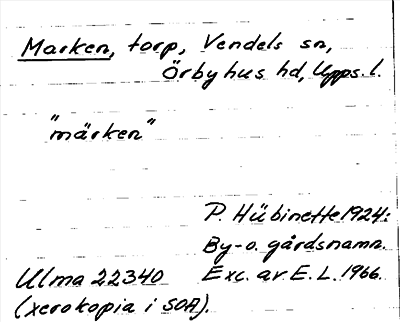 Marken, torp, Vendels sn,
Örbyhus hd, Upps. l.
"märken"
P. Hübinette 1924:
By- o. gårdsnamn.
Ulma 22340 Exc. av E. L. 1966.
(xerokopia i SOA).